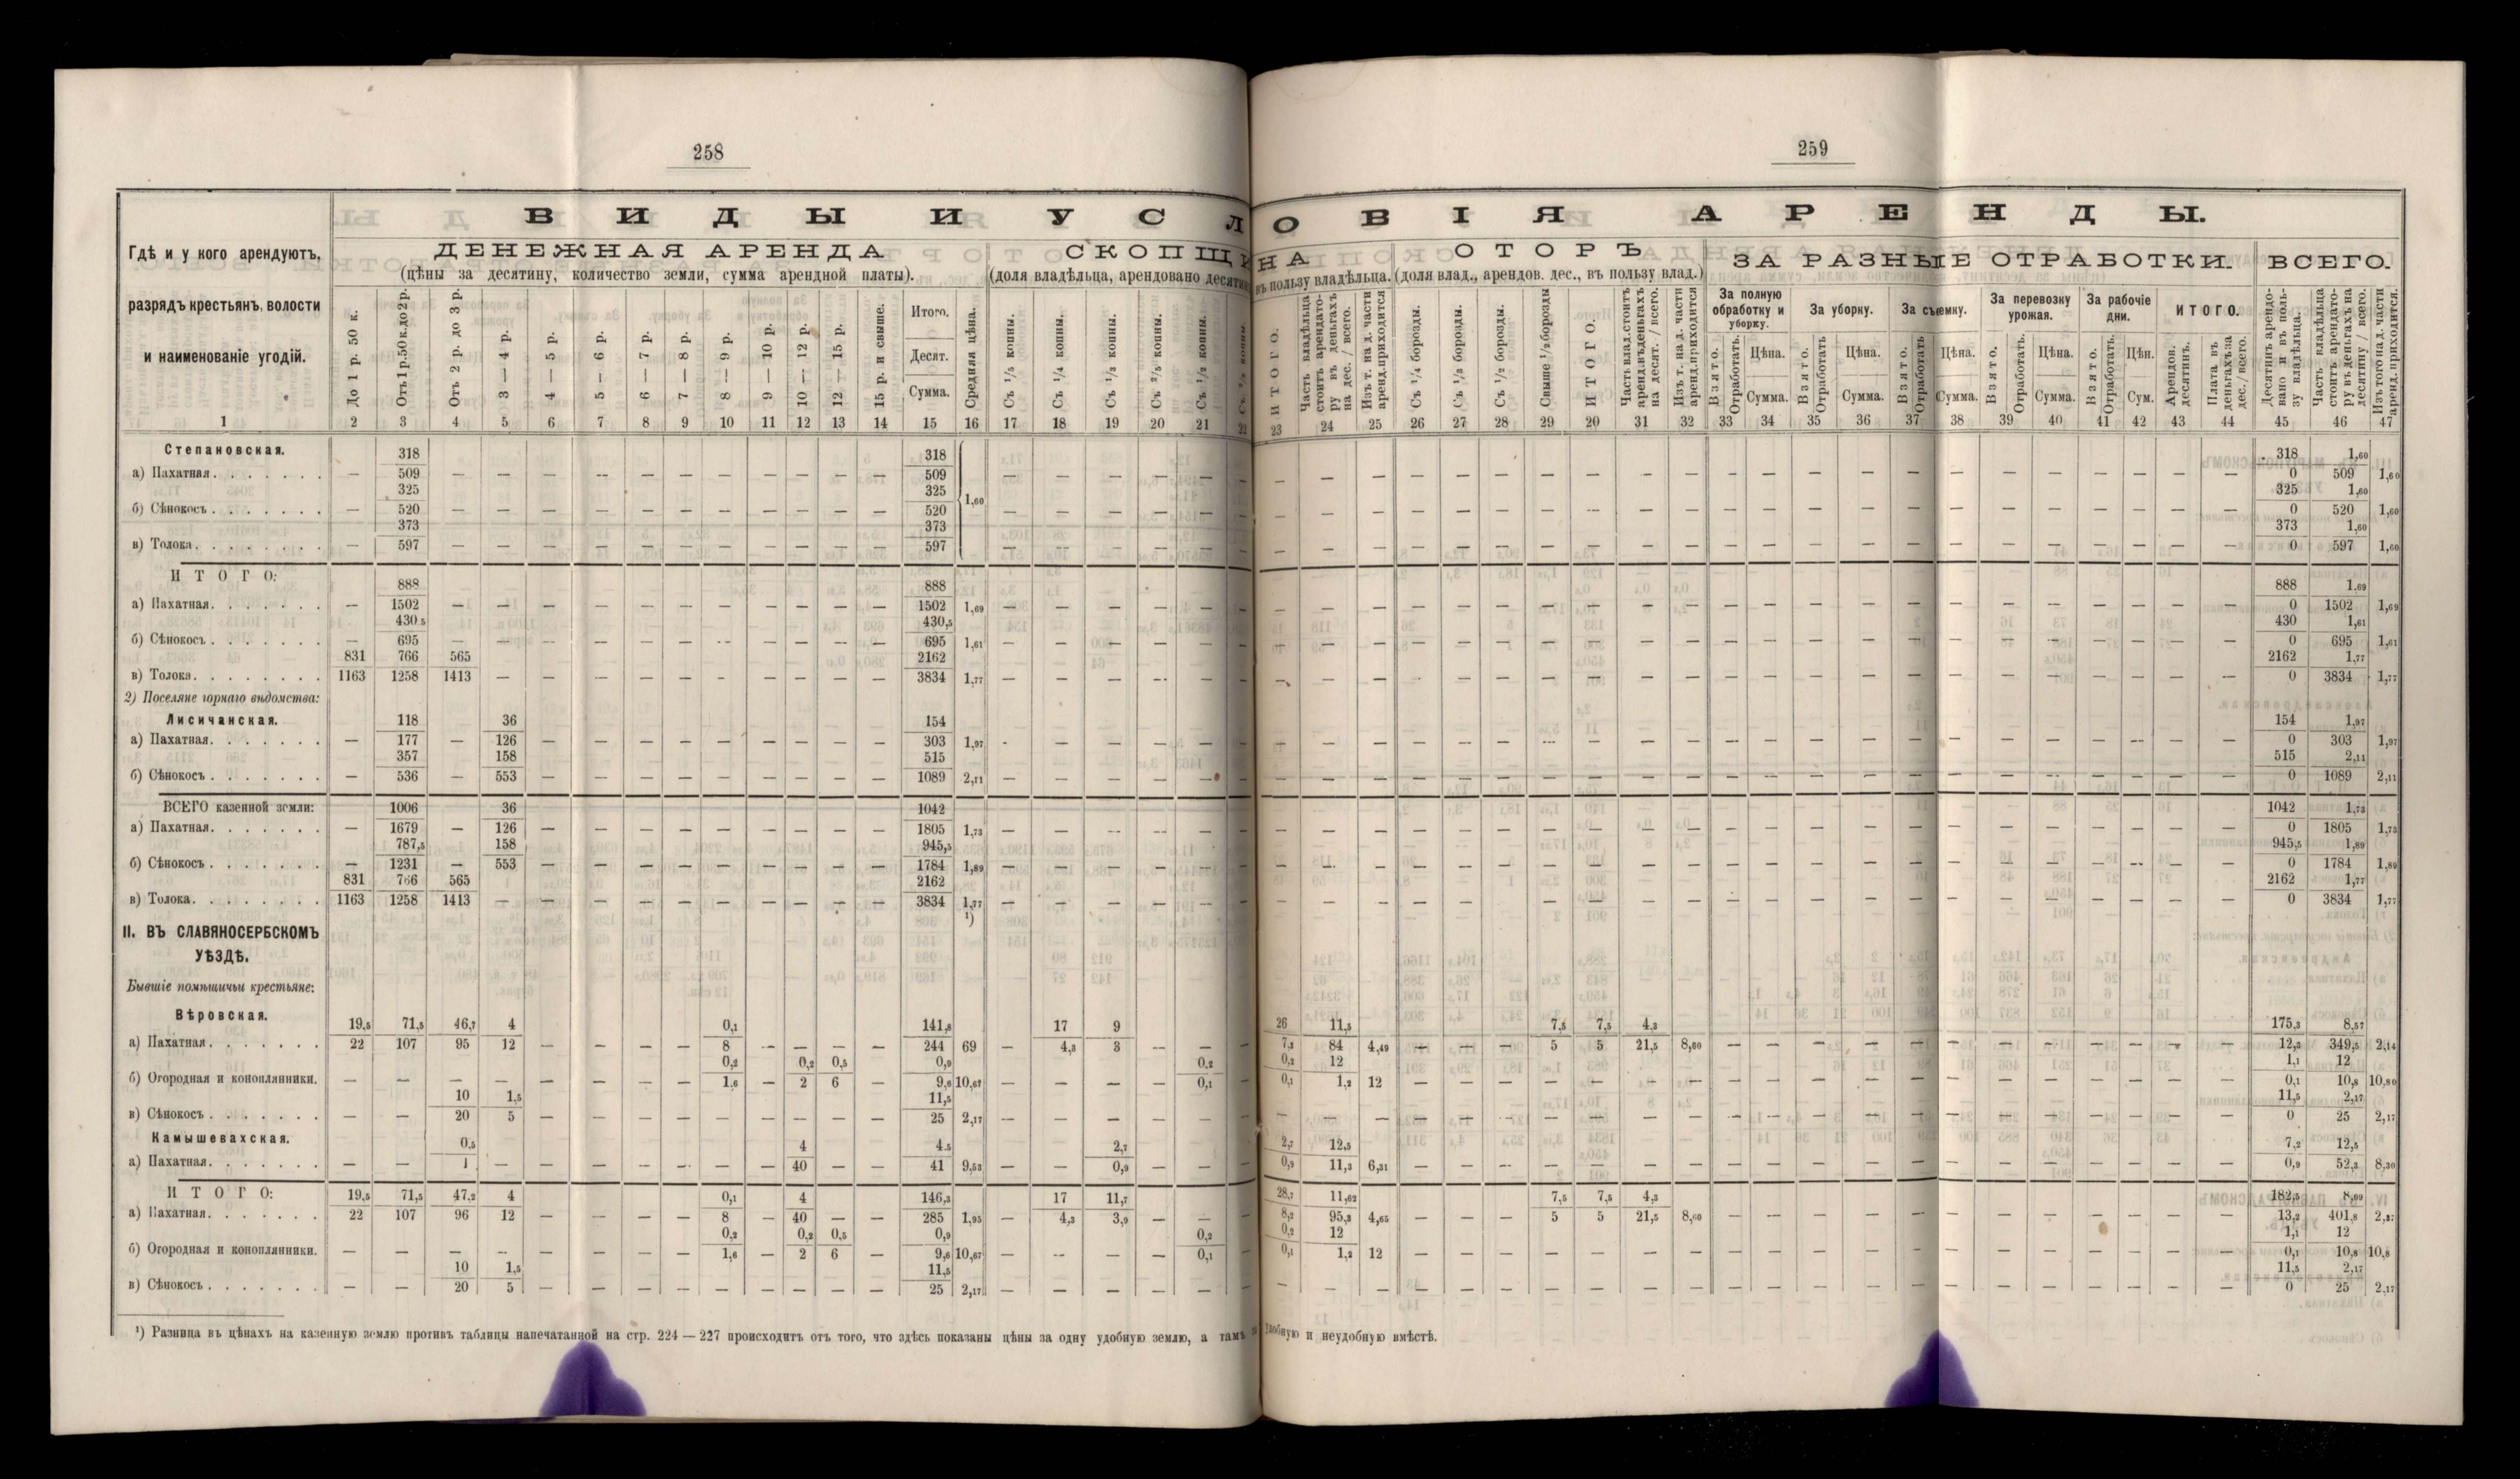 258
259
ВИДЫ И УСЛОВІЯ АРЕНДЫ.
Гдѣ и у кого арендуютъ, разрядъ крестьянъ, волости и наименованіе угодій.
ДЕНЕЖНАЯ АРЕНДА
(цѣны за десятину, количество земли, сумма арендной платы).
СКОПЩИНА
(доля владѣльца, арендовано десятинъ въ пользу владѣльца.
ОТОРЪ
(доля влад., арендов. дес., въ пользу влад.)
ЗА РАЗНЫЕ ОТРАБОТКИ.
ВСЕГО.
До 1 р. 50 к.
Отъ 1 р. 50 к. до 2 р.
Отъ 2 р. до 3 р.
3 — 4 р.
4 — 5 р.
5 — 6 р.
6 — 7 р.
7 — 8 р.
8 — 9 р.
9 — 10 р.
10 — 12 р.
12 — 15 р.
15 р. и свыше.
Итого.
Десят.
Сумма.
Средняя цѣна.
Съ 1/5 копны.
Съ 1/4 копны.
Съ 1/3 копны.
Съ 2/5 копны.
Съ 1/2 копны.
ИТОГО.
Часть владѣльца стоитъ арендатору въ деньгахъ на дес. / всего.
Изъ т. на д. части аренд. приходится
Съ 1/4 борозды.
Съ 1/3 борозды.
Съ 1/2 борозды.
Свыше 1/2 борозды
ИТОГО.
Часть влад. стоитъ аренд. въ деньгахъ на десят. / всего.
Изъ т. на д. части аренд. приходится
За полную обработку и уборку.
За уборку.
За съемку.
За перевозку урожая.
За рабочіе дни.
ИТОГО.
Взято. Отработать.
Цѣна. Сумма.
Взято. Отработать
Цѣна. Сумма.
Взято. Отработать
Цѣна. Сумма.
Взято. Отработать.
Цѣна. Сумма.
Взято. Отработать.
Цѣн. Сум.
Арендов. десятинъ.
Плата въ деньгахъ за дес. / всего.
Десятинъ арендовано и въ пользу владѣльца.
Часть владѣльца стоитъ арендатору въ деньгахъ на десятину / всего.
Изъ того на д. части аренд. приходится.
1 2 3 4 5 6 7 8 9 10 11 12 13 14 15 16 17 18 19 20 21 22 23 24 25 26 27 28 29 20 31 32 33 34 35 36 37 38 39 40 41 42 43 44 45 46 47
Степановская. 318 318 318 1,60
а) Пахатная. — 509 — — — — — — — — — — — 509 — — — — — — — — — — — — — — — — — — — — — — — — — — — — 0 509 1,60
325 325 1,60 325 1,60
б) Сѣнокосъ. — 520 — — — — — — — — — — — 520 — — — — — — — — — — — — — — — — — — — — — — — — — — — — 0 520 1,60
373 373 373 1,60
в) Толока. — 597 — — — — — — — — — — — 597 — — — — — — — — — — — — — — — — — — — — — — — — — — — — 0 597 1,60
ИТОГО: 888 888 888 1,69
а) Пахатная. — 1502 — — — — — — — — — — — 1502 1,69 — — — — — — — — — — — — — — — — — — — — — — — — — — — — 0 1502 1,69
430,5 430,5 430 1,61
б) Сѣнокосъ. — 695 — — — — — — — — — — — 695 1,61 — — — — — — — — — — — — — — — — — — — — — — — — — — — — 0 695 1,61
831 766 565 2162 2162 1,77
в) Толока. 1163 1258 1413 — — — — — — — — — — 3834 1,77 — — — — — — — — — — — — — — — — — — — — — — — — — — — — 0 3834 1,77
2) Поселяне горнаго вѣдомства:
Лисичанская. 118 36 154 154 1,97
а) Пахатная. — 177 — 126 — — — — — — — — — 303 1,97 - — — — — — — — — — — — — — — — — — — — — — — — — — — 0 303 1,97
357 158 515 515 2,11
б) Сѣнокосъ — 536 — 553 — — — — — — — — — 1089 2,11 — — — — — — — — — — — — — — — — — — — — — — — — — — — — 0 1089 2,11
ВСЕГО казенной земли: 1006 36 1042 1042 1,73
а) Пахатная. — 1679 — 126 — — — — — — — — — 1805 1,73 — — — — — — — — — — — — — — — — — — — — — — — — — — — — 0 1805 1,73
787,5 158 945,5 945,5 1,89
б) Сѣнокосъ — 1231 — 553 — — — — — — — — — 1784 1,89 — — — — — — — — — — — — — — — — — — — — — — — — — — — — 0 1784 1,89
831 766 565 2162 2162 1,77
в) Толока. 1163 1258 1413 — — — — — — — — — — 3834 1,77 — — — — — — — — — — — — — — — — — — — — — — — — — — — — 0 3834 1,77
¹)
II. ВЪ СЛАВЯНОСЕРБСКОМЪ
УѢЗДѢ.
Бывшіе помѣщичьи крестьяне:
Вѣровская. 19,5 71,5 46,7 4 0,1 141,8 17 9 26 11,5 7,5 7,5 4,3 175,3 8,57
а) Пахатная. 22 107 95 12 — — — — 8 — — — — 244 69 — 4,3 3 — — 7,3 84 4,49 — — — 5 5 21,5 8,60 — — — — — — — — — — — — 12,3 349,5 2,14
0,2 0,2 0,5 0,9 0,2 0,2 12 1,1 12
б) Огородная и коноплянники. — — — — — — — — 1,6 — 2 6 — 9,6 10,67 — — — — 0,1 — 0,1 1,2 12 — — — — — — — — — — — — — — — — — — — 0,1 10,8 10,80
10 1,5 11,5 11,5 2,17
в) Сѣнокосъ — — 20 5 — — — — — — — — — 25 2,17 — — — — — — — — — — — — — — — — — — — — — — — — — — — — 0 25 2,17
Камышевахская. 0,5 4 4,5 2,7 2,7 12,5 7,2 12,5
а) Пахатная. — — 1 — — — — — — — 40 — — 41 9,53 — — 0,9 — — — 0,9 11,3 6,31 — — — — — — — — — — — — — — — — — — — 0,9 52,3 8,30
ИТОГО: 19,5 71,5 47,2 4 0,1 4 146,3 17 11,7 28,7 11,62 7,5 7,5 4,3 182,5 8,09
а) Пахатная. 22 107 96 12 — — — — 8 — 40 — — 285 1,95 — 4,3 3,9 — — — 8,2 95,3 4,65 — — — 5 5 21,5 8,60 — — — — — — — — — — — — 13,2 401,8 2,27
0,2 0,2 0,5 0,9 0,2 0,2 12 1,1 12
б) Огородная и коноплянники. — — — — — — — — 1,6 — 2 6 — 9,6 10,67 — — — — 0,1 — 0,1 1,2 12 — — — — — — — — — — — — — — — — — — — 0,1 10,8 10,8
10 1,5 11,5 11,5 2,17
в) Сѣнокосъ — — 20 5 — — — — — — — — — 25 2,17 — — — — — — — — — — — — — — — — — — — — — — — — — — — — 0 25 2,17
¹) Разница въ цѣнахъ на казенную землю противъ таблицы напечатанной на стр. 224 — 227 происходитъ отъ того, что здѣсь показаны цѣны за одну удобную землю, а тамъ за удобную и неудобную вмѣстѣ.